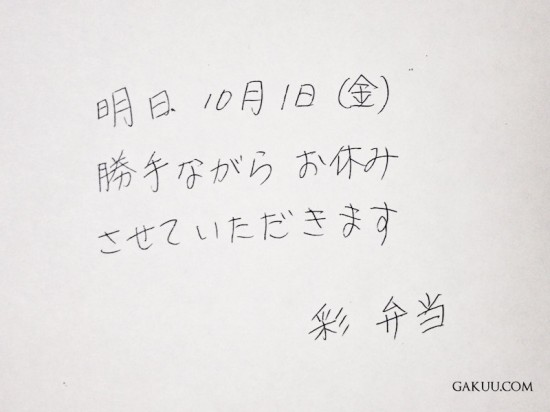 明日 10月1日(金)
勝手ながら お休み
させていただきます
彩 弁当
GAKUU.COM